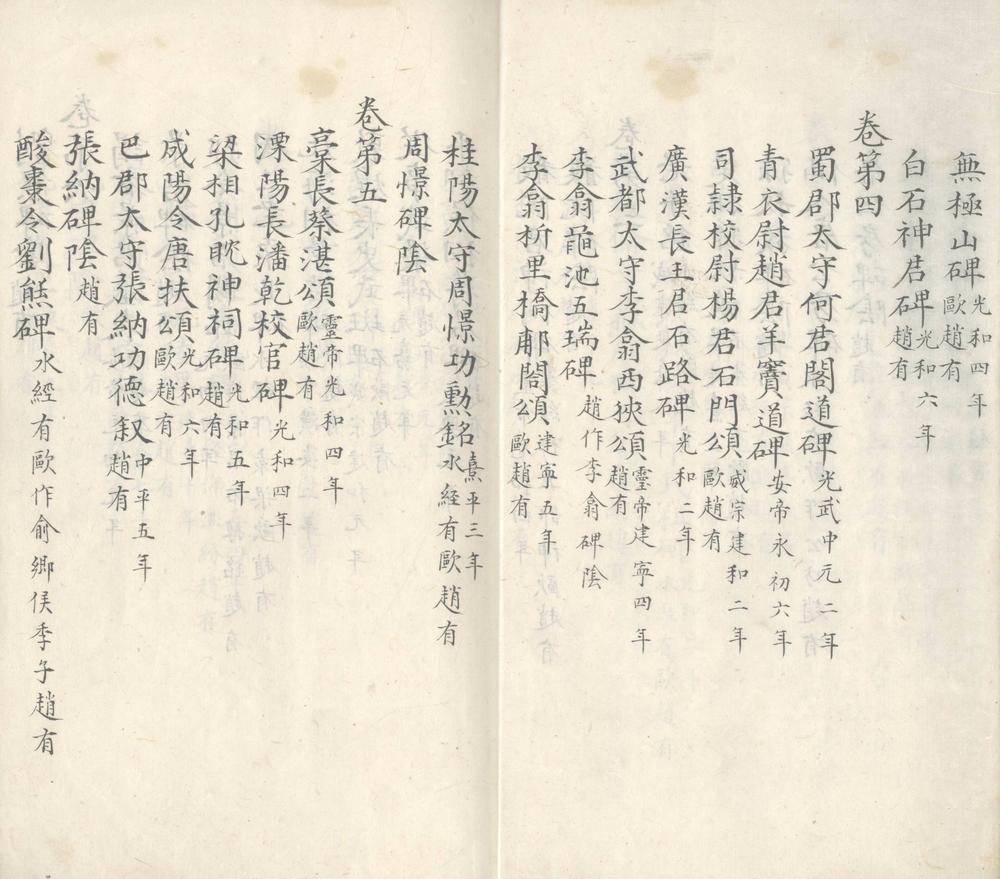 無極山碑光和四年歐趙有
白石神君碑光和六年趙有
卷第四
蜀郡太守何君閣道碑光武中元二年
青衣尉趙君羊竇道碑安帝永初六年
司隸校尉楊君石門頌威宗建和二年歐趙有
廣漢長王君石路碑光和二年
武都太守李翕西狹頌靈帝建寧四年趙有
李翕黽池五瑞碑趙作李翕碑陰
李翕析里橋郙閣頌建寧五年歐趙有
桂陽太守周憬功勳銘熹平三年水經有歐趙有
周憬碑陰
卷第五
稾長蔡湛頌靈帝光和四年歐趙有
溧陽長潘乾校官碑光和四年
梁相孔耽神祠碑光和五年趙有
成陽令唐扶頌光和六年歐趙有
巴郡太守張納功德叙中平五年趙有
張納碑陰趙有
酸棗令劉熊碑水經有歐作俞鄉侯季子趙有